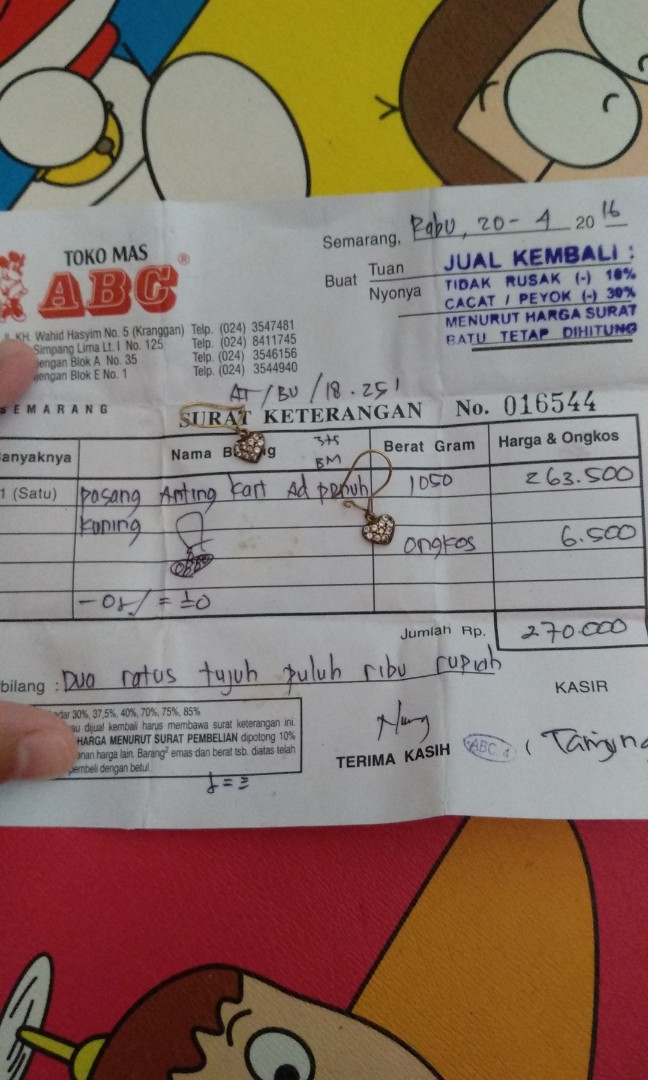 Semarang, Rabu, 20 - 4 20 16
TOKO MAS
ABC®
Buat Tuan
Nyonya
JUAL KEMBALI :
TIDAK RUSAK (-) 10%
CACAT / PEYOK (-) 30%
MENURUT HARGA SURAT
BATU TETAP DIHITUNG
KH. Wahid Hasyim No. 5 (Kranggan) Telp. (024) 3547481
Simpang Lima Lt. I No. 125 Telp. (024) 8411745
engan Blok A No. 35 Telp. (024) 3546156
engan Blok E No. 1 Telp. (024) 3544940
AT/BU/18.251
SEMARANG
SURAT KETERANGAN No. 016544
anyaknya Nama B g Berat Gram Harga & Ongkos
375
BM
1 (Satu) pasang Anting kart Ad penuh 1050 263.500
kuning
ongkos 6.500
Jumlah Rp. 270.000
bilang : Dua ratus tujuh puluh ribu rupiah
KASIR
dar 30%, 37,5%, 40%, 70%, 75%, 85%
au dijual kembali harus membawa surat keterangan ini.
HARGA MENURUT SURAT PEMBELIAN dipotong 10%
anan harga lain. Barang² emas dan berat tsb. diatas telah
pembeli dengan betul.
TERIMA KASIH
ABC. 4